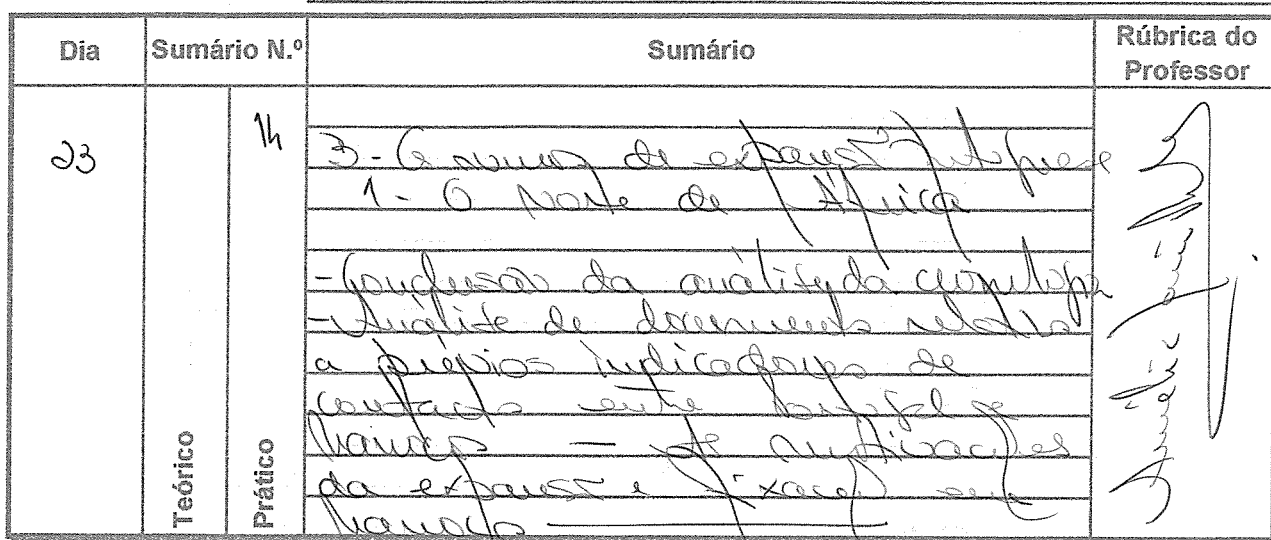 Dia Sumário N.º Sumário Rúbrica do Professor
23
14
Teórico
Prático
3- de
1- O Norte de África
- Conclusão da análise da cronologia
- Análise de documento relativo
a prévios indicadores de
contacto entre Portugal e
Marrocos — as motivações
da expansão e fixação em
Marrocos